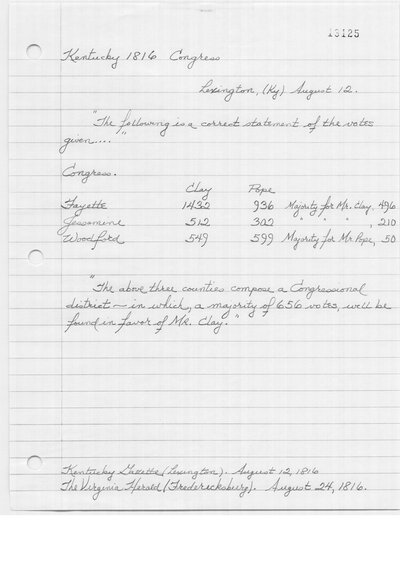 13125
Kentucky 1816 Congress
Lexington, (Ky) August 12.
"The following is a correct statement of the votes
given...."
Congress.
Clay Pope
Fayette 1432 936 Majority for Mr. Clay, 496
Jessamine 512 302 " " " , 210
Woodford 549 599 Majority for Mr. Pope, 50
"The above three counties compose a Congressional
district — in which, a majority of 656 votes, will be
found in favor of Mr. Clay."
Kentucky Gazette (Lexington). August 12, 1816
The Virginia Herald (Fredericksburg). August 24, 1816.